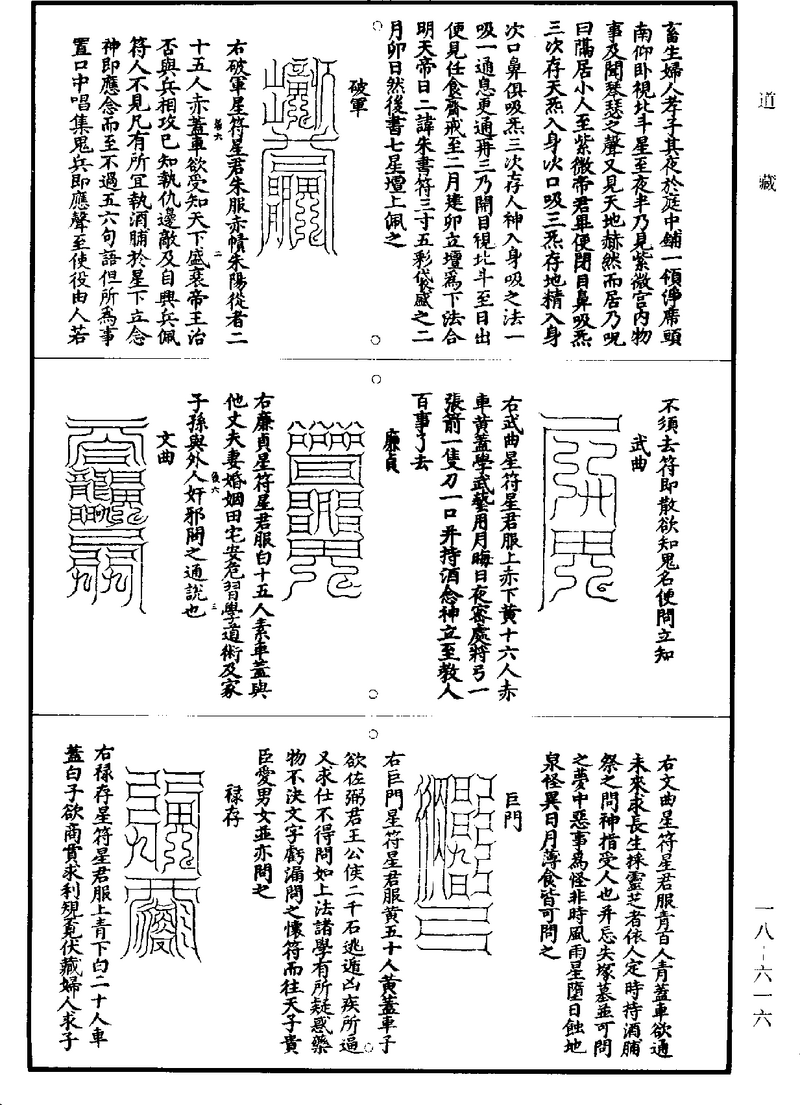 道藏
畜生婦人孝子其夜於庭中鋪一領淨席頭
南仰卧視北斗星至夜半乃見紫微宮内物
事及聞琴瑟之聲又見天地赫然而居乃呪
曰隔居小人至紫微帝君畢便閉目鼻吸炁
三次存天炁入身次口吸三炁存地精入身
次口鼻俱吸炁三次存人神入身吸之法一
吸一通息更通再三乃開目視北斗至日出
便見任食齋戒至二月建卯立壇為下法合
明天帝日二諱朱書符三寸五彩袋盛之二
月卯日然後書七星壇上佩之
破軍
右破軍星符星君朱服赤幘朱陽從者二
十五人赤蓋車欲受知天下盛衰帝王治
否與兵相攻已知執仇邊敵及自興兵佩
符人不見凡有所宜執酒脯於星下立念
神即應念而至不過五六句語但所為事
置口中唱集鬼兵即應聲至使役由人若
不須去符即散欲知鬼名便問立知
武曲
右武曲星符星君服上赤下黃十六人赤
車黃蓋學武藝用月晦日夜密處將弓一
張箭一隻刀一口并持酒念神立至教人
百事了去
廉貞
右廉貞星符星君服白十五人素車蓋與
他丈夫妻婚姻田宅安危習學道術及家
子孫與外人奸邪問之通說也
文曲
右文曲星符星君服青百人青蓋車欲通
未來求長生採靈芝者依人定時持酒脯
祭之問神指受人也并忘失塚墓並可問
之夢中惡事為怪非時風雨星墮日蝕地
泉怪異日月薄食皆可問之
巨門
右巨門星符星君服黃五十人黃蓋車子
欲佐弼君王公侯二千石逃遁凶疾所逼
又求仕不得問如上法諸學有所疑惑藥
物不決文字虧漏問之懷符而往天子貴
臣愛男女並亦問之
祿存
右祿存星符星君服上青下白二十人車
蓋白子欲商賈求利規覓伏藏婦人求子
一八-六一六